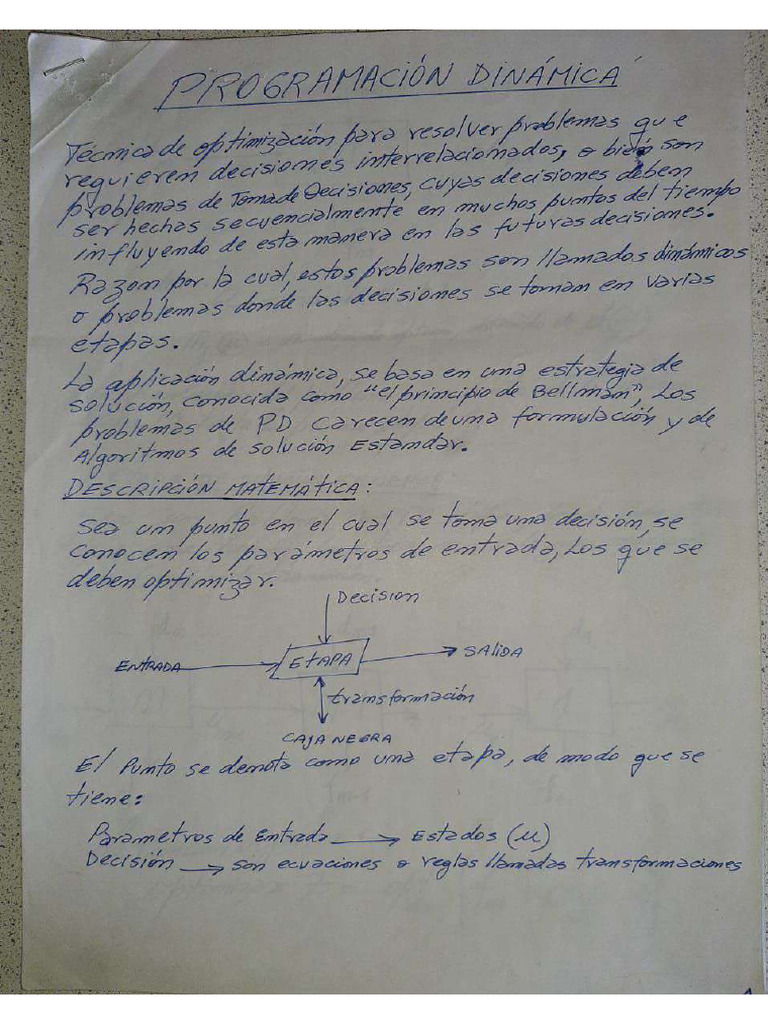 PROGRAMACIÓN DINÁMICA
Técnica de optimización para resolver problemas que
requieren decisiones interrelacionados, o bien son
problemas de Toma de Decisiones, cuyas decisiones deben
ser hechas secuencialmente en muchos puntos del tiempo
influyendo de esta manera en las futuras decisiones.
Razon por la cual, estos problemas son llamados dinámicos
o problemas donde las decisiones se toman en varias
etapas.
La aplicación dinámica, se basa en una estrategia de
solución, conocida como "el principio de Bellman", Los
problemas de PD carecen de una formulación y de
Algoritmos de solución Estandar.
DESCRIPCIÓN MATEMÁTICA:
Sea un punto en el cual se toma una decisión, se
conocen los parámetros de entrada, Los que se
deben optimizar.
Decision
ENTRADA → ETAPA → SALIDA
transformación
CAJA NEGRA
El Punto se denota como una etapa, de modo que se
tiene:
Parametros de Entrada → Estados (μ)
Decisión → son ecuaciones o reglas llamadas transformaciones